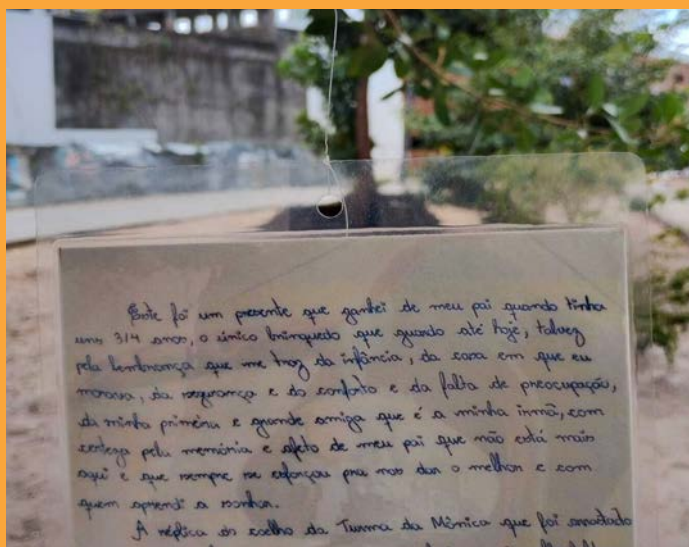 Este foi um presente que ganhei de meu pai quando tinha
uns 3/4 anos, o único brinquedo que guardo até hoje, talvez
pela lembrança que me traz da infância, da casa em que eu
morava, da segurança e do conforto e da falta de preocupação,
da minha primeira e grande amiga que é a minha irmã, com
certeza pela memória e afeto de meu pai que não está mais
aqui e que sempre se esforçou pra nos dar o melhor e com
quem aprendi a sonhar.
A réplica do coelho da Turma da Mônica que foi